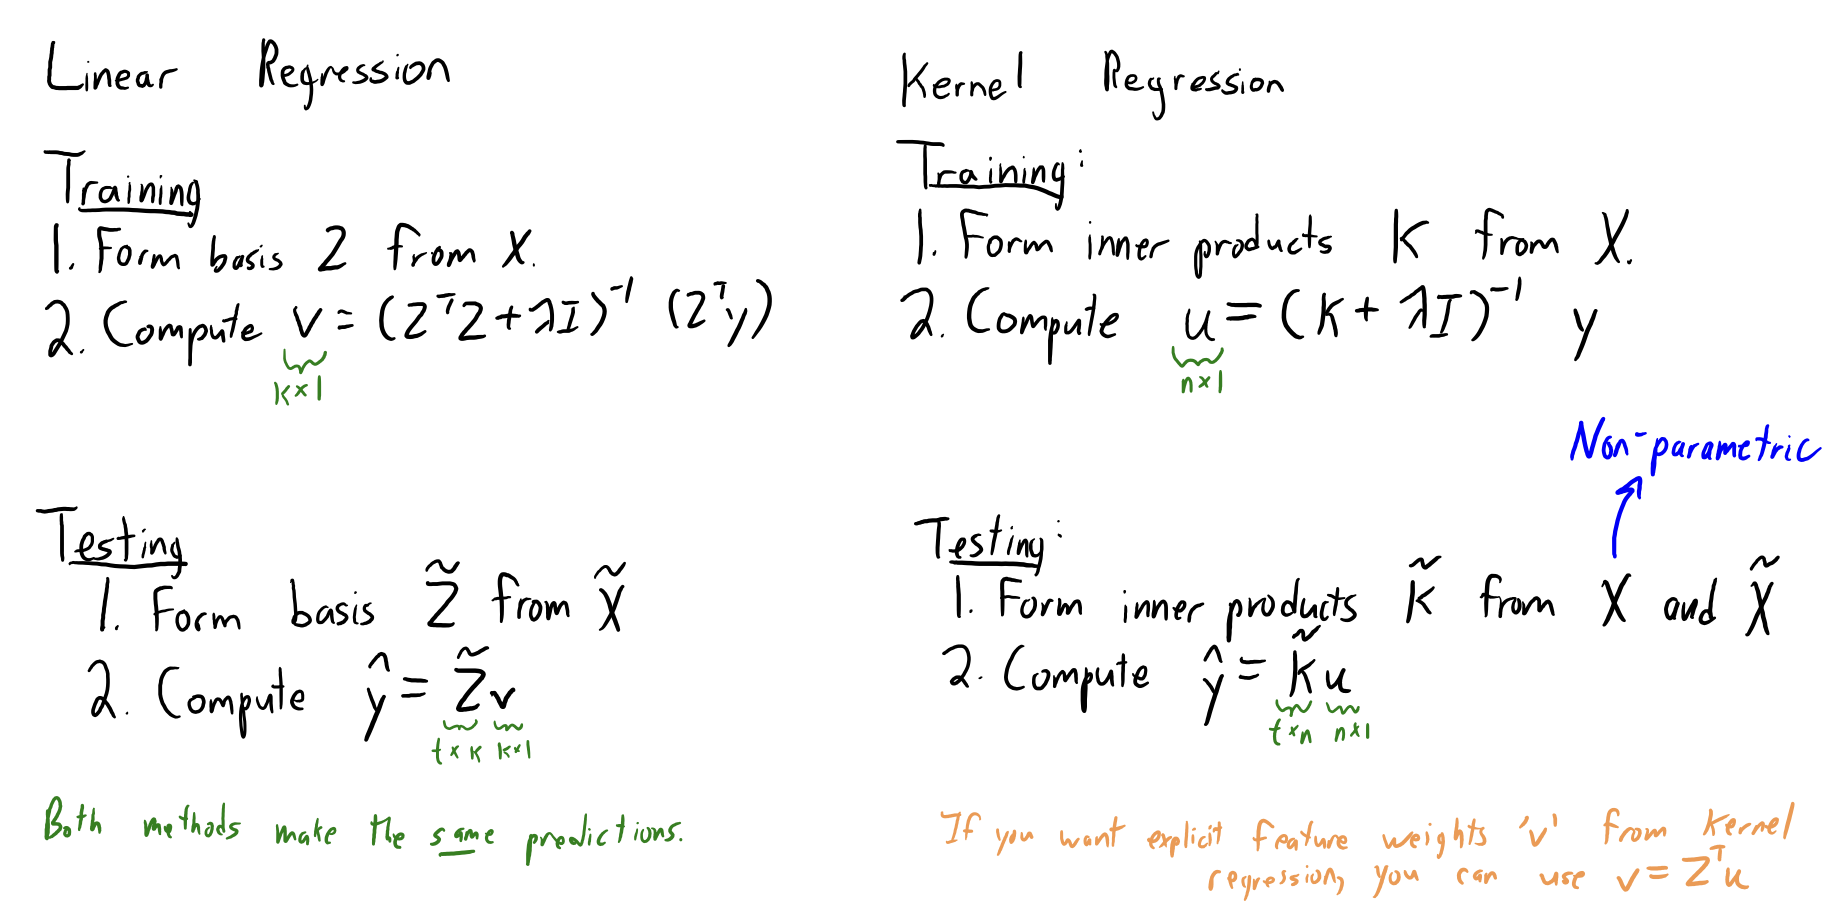 Linear Regression
Training
1. Form basis Z from X.
2. Compute v = (ZᵀZ + λI)⁻¹ (Zᵀy)
k×1
Testing
1. Form basis Z̃ from X̃
2. Compute ŷ = Z̃v
t×k k×1
Both methods make the same predictions.
Kernel Regression
Training:
1. Form inner products K from X.
2. Compute u = (K + λI)⁻¹ y
n×1
Non-parametric
Testing:
1. Form inner products K̃ from X and X̃
2. Compute ŷ = K̃u
t×n n×1
If you want explicit feature weights 'v' from kernel
regression, you can use v = Zᵀu